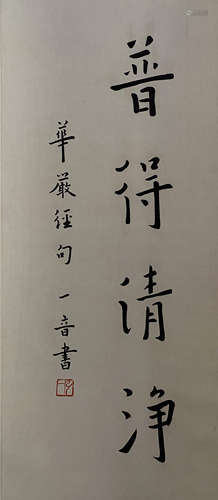 普得清淨
華嚴經句 一音書